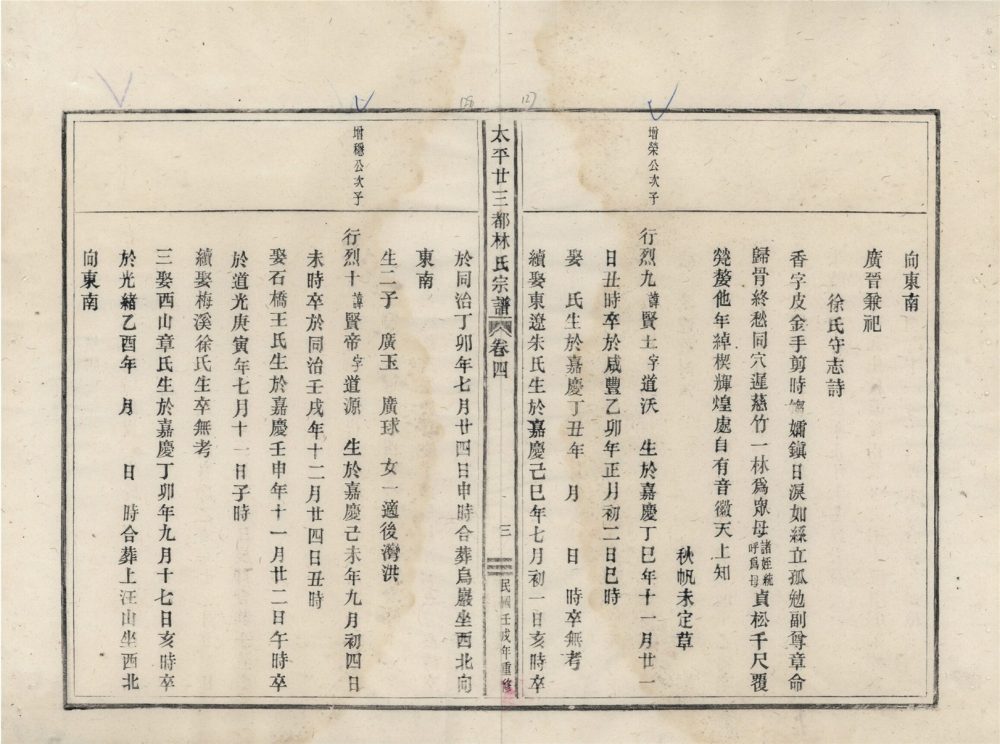 向東南
廣晉兼祀
徐氏守志詩
香字皮金手剪時 孀鎮日淚如絲立孤勉副尊章命
歸骨終愁同穴遲慈竹一林爲眾母諸姪統呼爲母貞松千尺覆
煢嫠他年綽楔輝煌處自有音徽天上知
秋帆未定草
增榮公次子
行烈九諱賢土字道沃 生於嘉慶丁巳年十一月廿一
日丑時卒於咸豐乙卯年正月初二日巳時
娶 氏生於嘉慶丁丑年 月 日 時卒無考
續娶東遼朱氏生於嘉慶己巳年七月初一日亥時卒
太平廿三都林氏宗譜 卷四 三 民國壬戌年重修
於同治丁卯年七月廿四日申時合葬烏巖坐西北向
東南
生二子 廣玉 廣球 女一適後灣洪
增穩公次子
行烈十諱賢帝字道源 生於嘉慶己未年九月初四日
未時卒於同治壬戌年十二月廿四日丑時
娶石橋王氏生於嘉慶壬申年十一月廿二日午時卒
於道光庚寅年七月十一日子時
續娶梅溪徐氏生卒無考
三娶西山章氏生於嘉慶丁卯年九月十七日亥時卒
於光緒乙酉年 月 日 時合葬上汪山坐西北
向東南
127
128